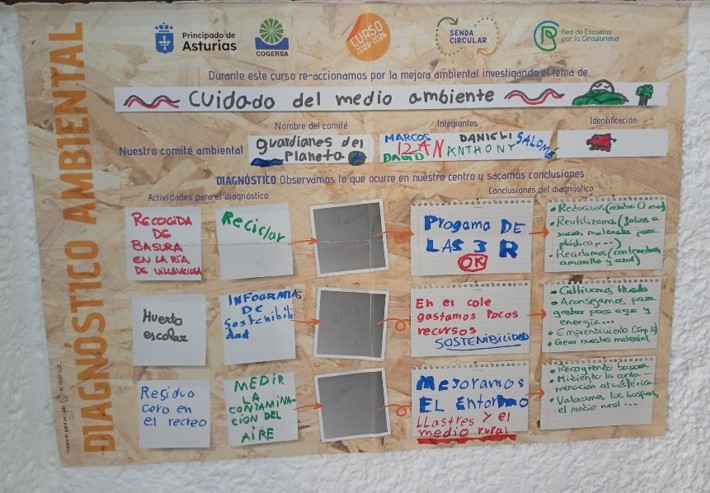 DIAGNÓSTICO AMBIENTAL
Principado de
Asturias
COGERSA
CURSO
2025-2026
SENDA
CIRCULAR
Red de Escuelas
por la Circularidad
Durante este curso re-accionamos por la mejora ambiental investigando el tema de
Cuidado del medio ambiente
Nombre del comité
Integrantes
Identificación
Nuestro comité ambiental
guardianes del
Planeta
MARCOS
IZAN
DAVID
DANIELI
ANTHONY
SALOMÉ
DIAGNÓSTICO Observamos lo que ocurre en nuestro centro y sacamos conclusiones
Actividades para el diagnóstico
Conclusiones del diagnóstico
RECOGIDA
DE
BASURA
EN LA RÍA
DE VILLAVICIOSA
Reciclar
Progama DE
LAS 3 R
OK
Reducimos (residuo 0
Reutilizamos (folios a
sucio, materiales para
plástica, ...)
Reciclamos (contenedores
amarillo y azul)
Huerto
escolar
INFOGRAFIAS
DE
Sostenibili
dad
En el cole
gastamos Pocos
recursos
SOSTENIBILIDAD
Cultivamos, Huerto
Aconsejamos para
gastar poca agua y
energía...
Emprendimiento
Crear nuestro material
Residuo
cero en
el recreo
MEDIR
LA
CONTAMINA-
CION DEL
AIRE
Mejoramos
EL Entorno
LLastres y el
medio rural
Recogiendo basura
Midiendo la conta-
minación atmosférica
Valoramos los bosques,
el medio rural ...